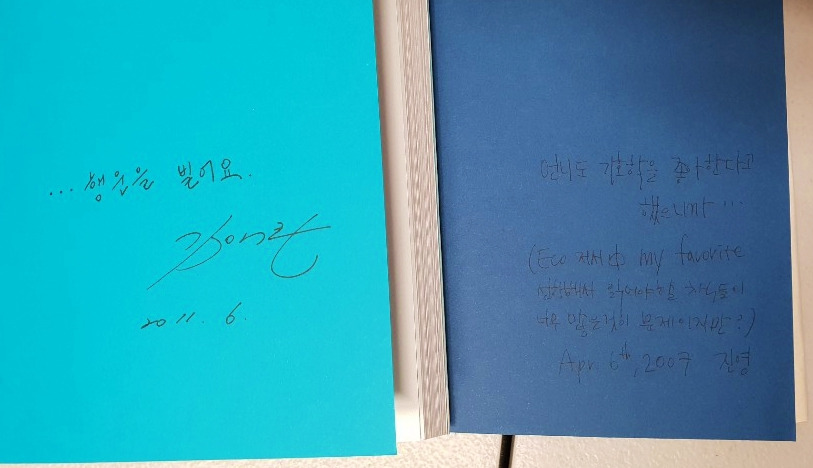 ... 행운을 빌어요.
2011. 6.
언니도 기호학을 좋아한다고
했으니까 ...
(Eco 저서中 my favorite
읽어야할
너무 많은것이 문제이지만 :)
Apr. 6th, 2007 진영